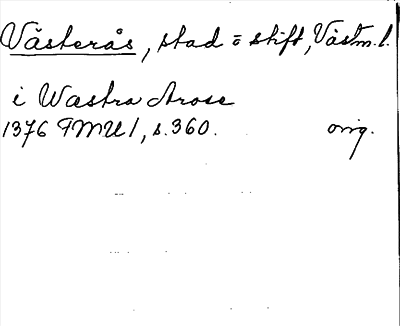 Västerås, stad o stift, Västm.l.
i Wæstra Arose
1376 FMU 1, s. 360. orig.